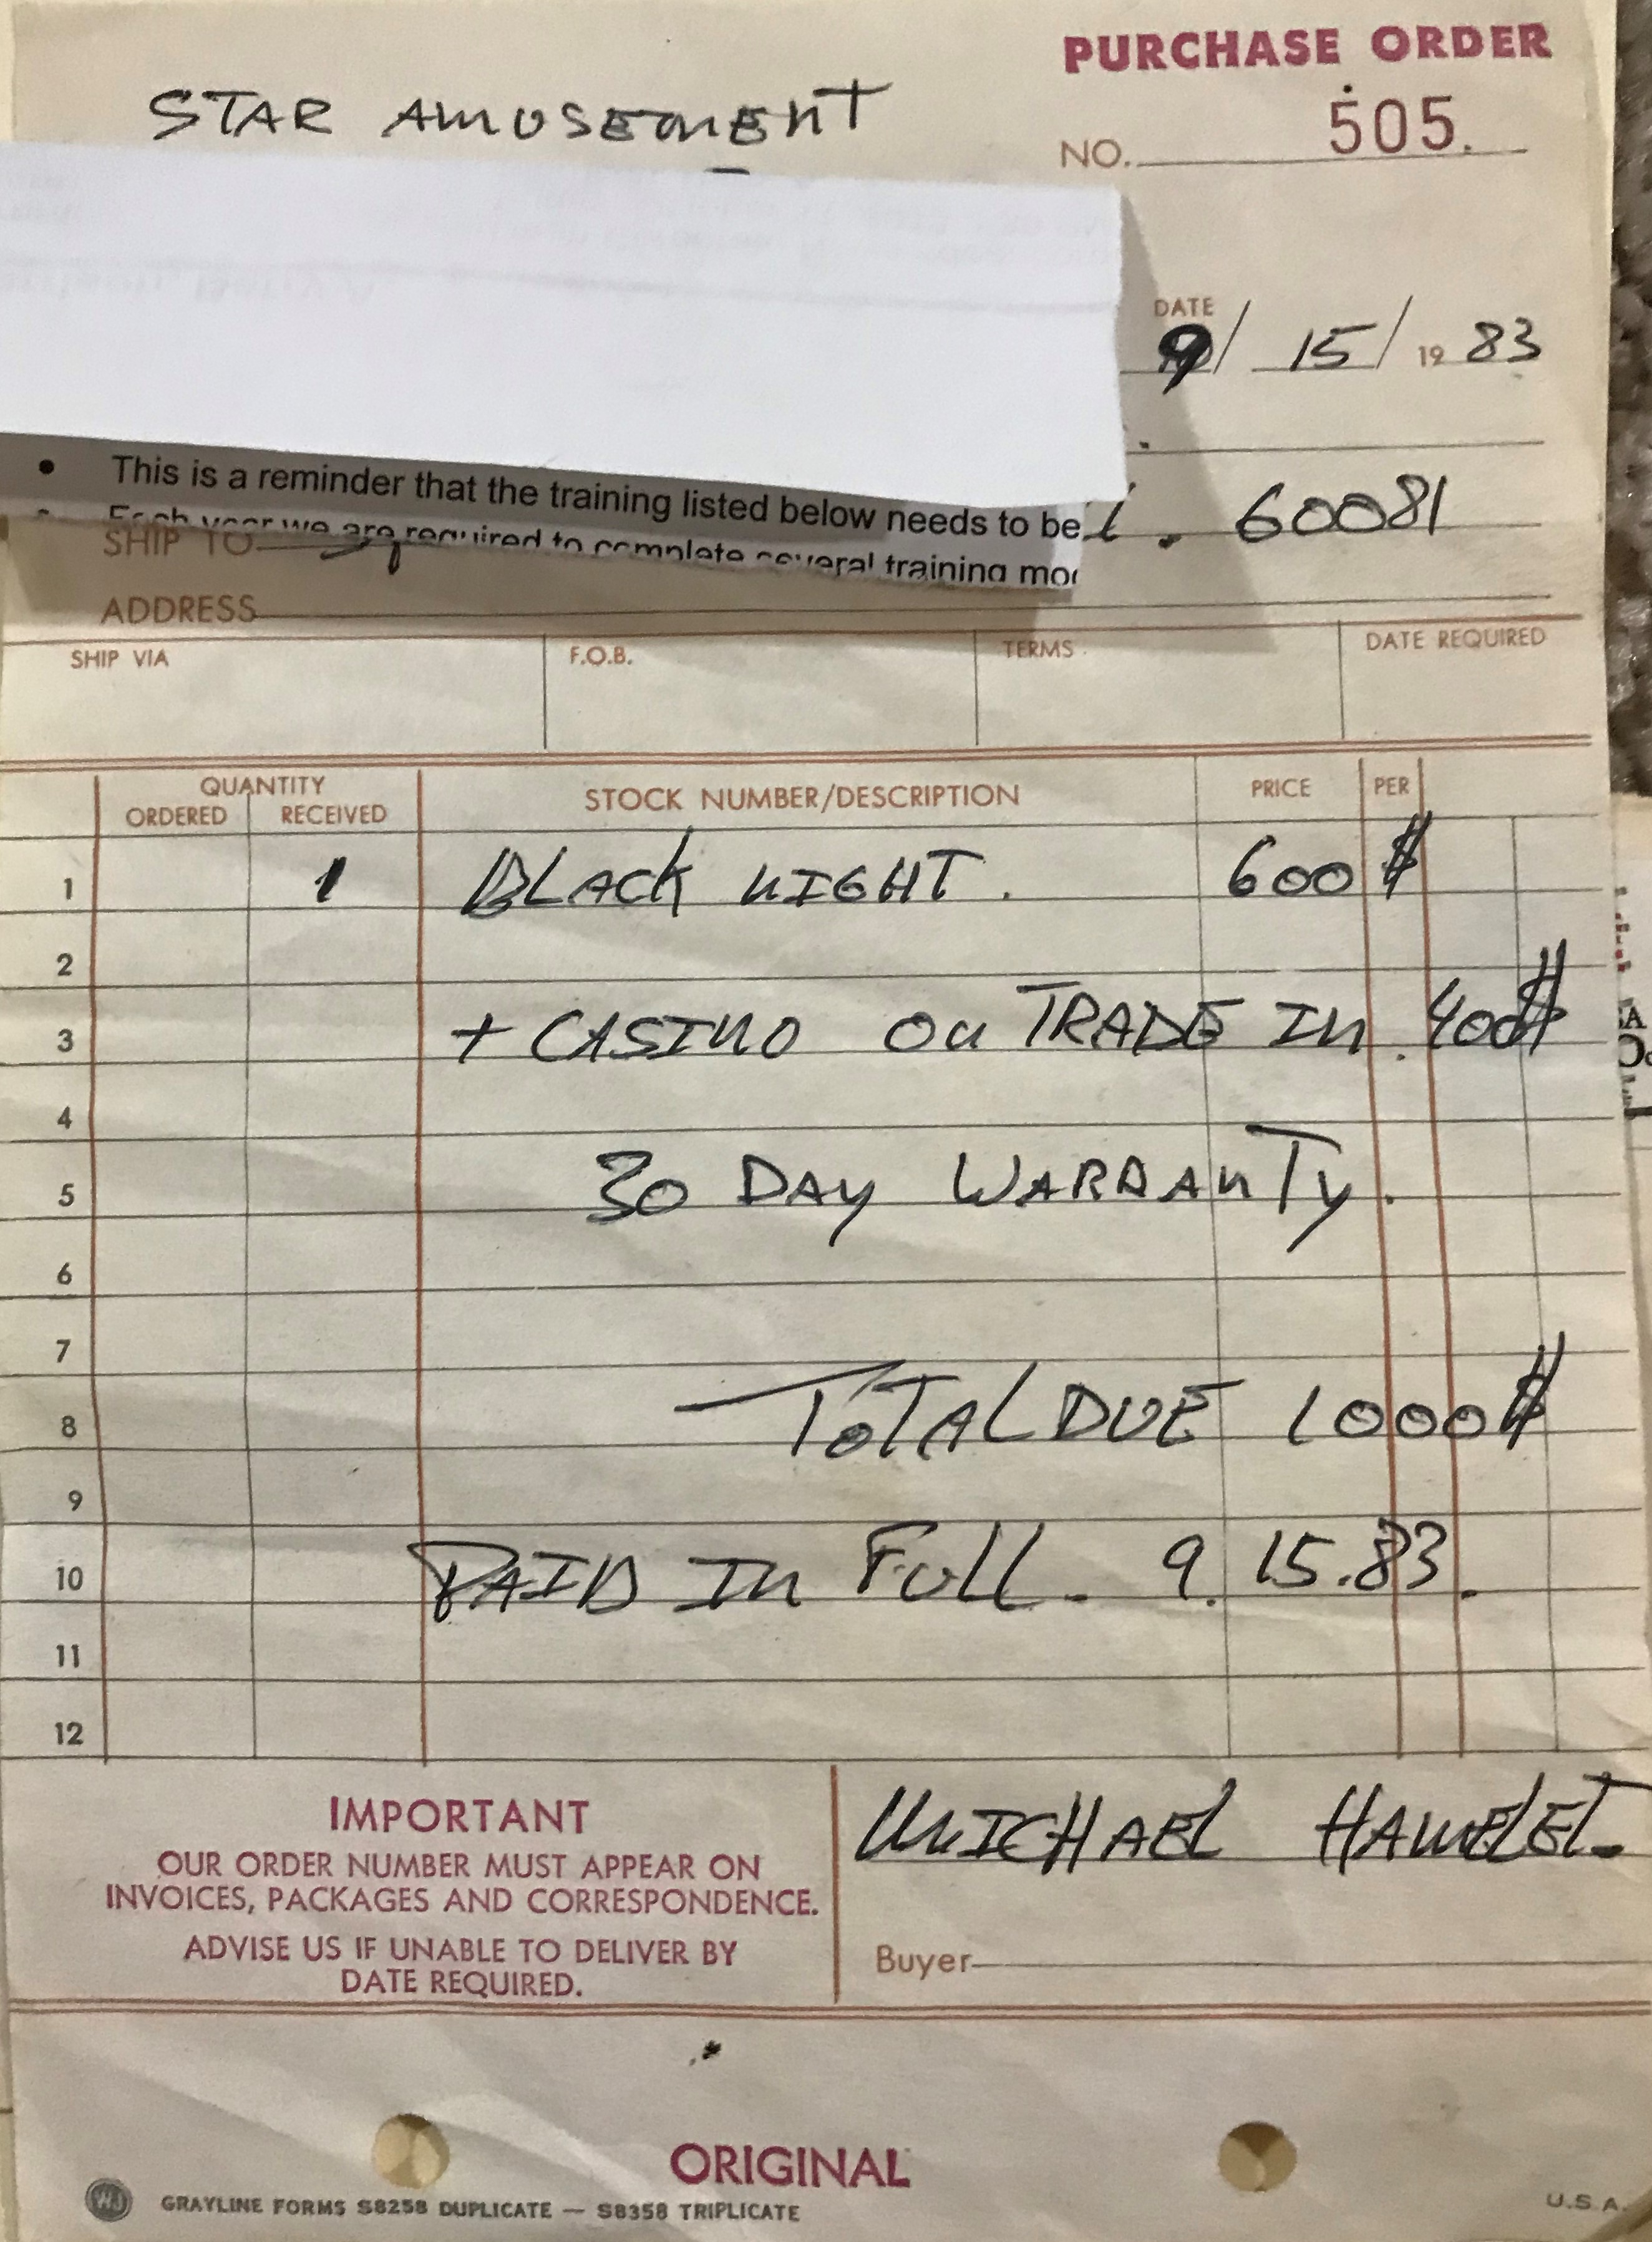 PURCHASE ORDER
STAR AMUSEMENT
NO. 505.
DATE
9/ 15/ 19 83
• This is a reminder that the training listed below needs to be
l. 60081
Each year we are required to complete several training
SHIP TO
ADDRESS
SHIP VIA F.O.B. TERMS DATE REQUIRED
QUANTITY
ORDERED RECEIVED STOCK NUMBER/DESCRIPTION PRICE PER
1 1 BLACK NIGHT. 600 $
2
3 + CASINO ON TRADE IN. 400$
4
5 30 DAY WARRANTY.
6
7
8 TOTAL DUE 1000$
9
10 PAID IN FULL. 9. 15.83.
11
12
IMPORTANT
OUR ORDER NUMBER MUST APPEAR ON
INVOICES, PACKAGES AND CORRESPONDENCE.
ADVISE US IF UNABLE TO DELIVER BY
DATE REQUIRED.
MICHAEL HAMELET.
Buyer
ORIGINAL
WJ GRAYLINE FORMS S8258 DUPLICATE — S8358 TRIPLICATE
U.S.A.